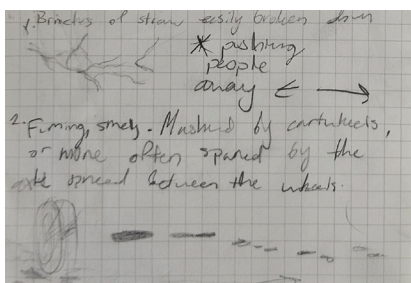 1. Branches of straw easily broken down
* pushing
people
away ← →
2. Fuming, smely. Mashed by cartwheels,
or more often spared by the
axle spread between the wheels.